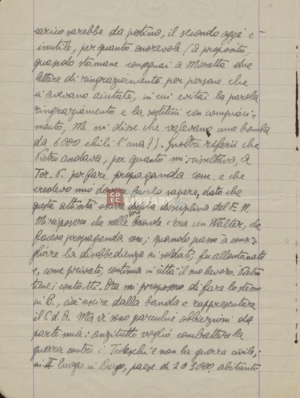 carico sarebbe da postino, il secondo oggi è
inutile, per quanto onorevole (a proposito,
quando stamane consegnai a Moretta due
lettere di ringraziamento per persone che
ci avevano aiutate, in cui evitai la parola
ringraziamento e la sostituii con compiaci-
mento, Mi. mi disse che valevano una bomba
da 6000 chili l'una?). Inoltre riferii che
Pietro andava, per quanto mi risultava, a
Tor. per fare propaganda com. e che
credevo mio dovere farlo sapere, dato che
Mi rispose che nella banda c'era un Walter, che
faceva propaganda com.; quando passò a consi-
gliare la disobbedienza ai soldati, fu allontanato
e, come privato, continua in città il suo lavoro.
tieni contatti. Ora mi propongo di fare lo stesso
in B., cioè uscire dalla banda e rappresentare
il C.d.A. Ma vi sono parecchie obbiezioni da
parte mia: anzitutto voglio combattere la
guerra contro i Tedeschi e non la guerra civile;
in II luogo in Borgo, paese di 2 o 3000 abitanti